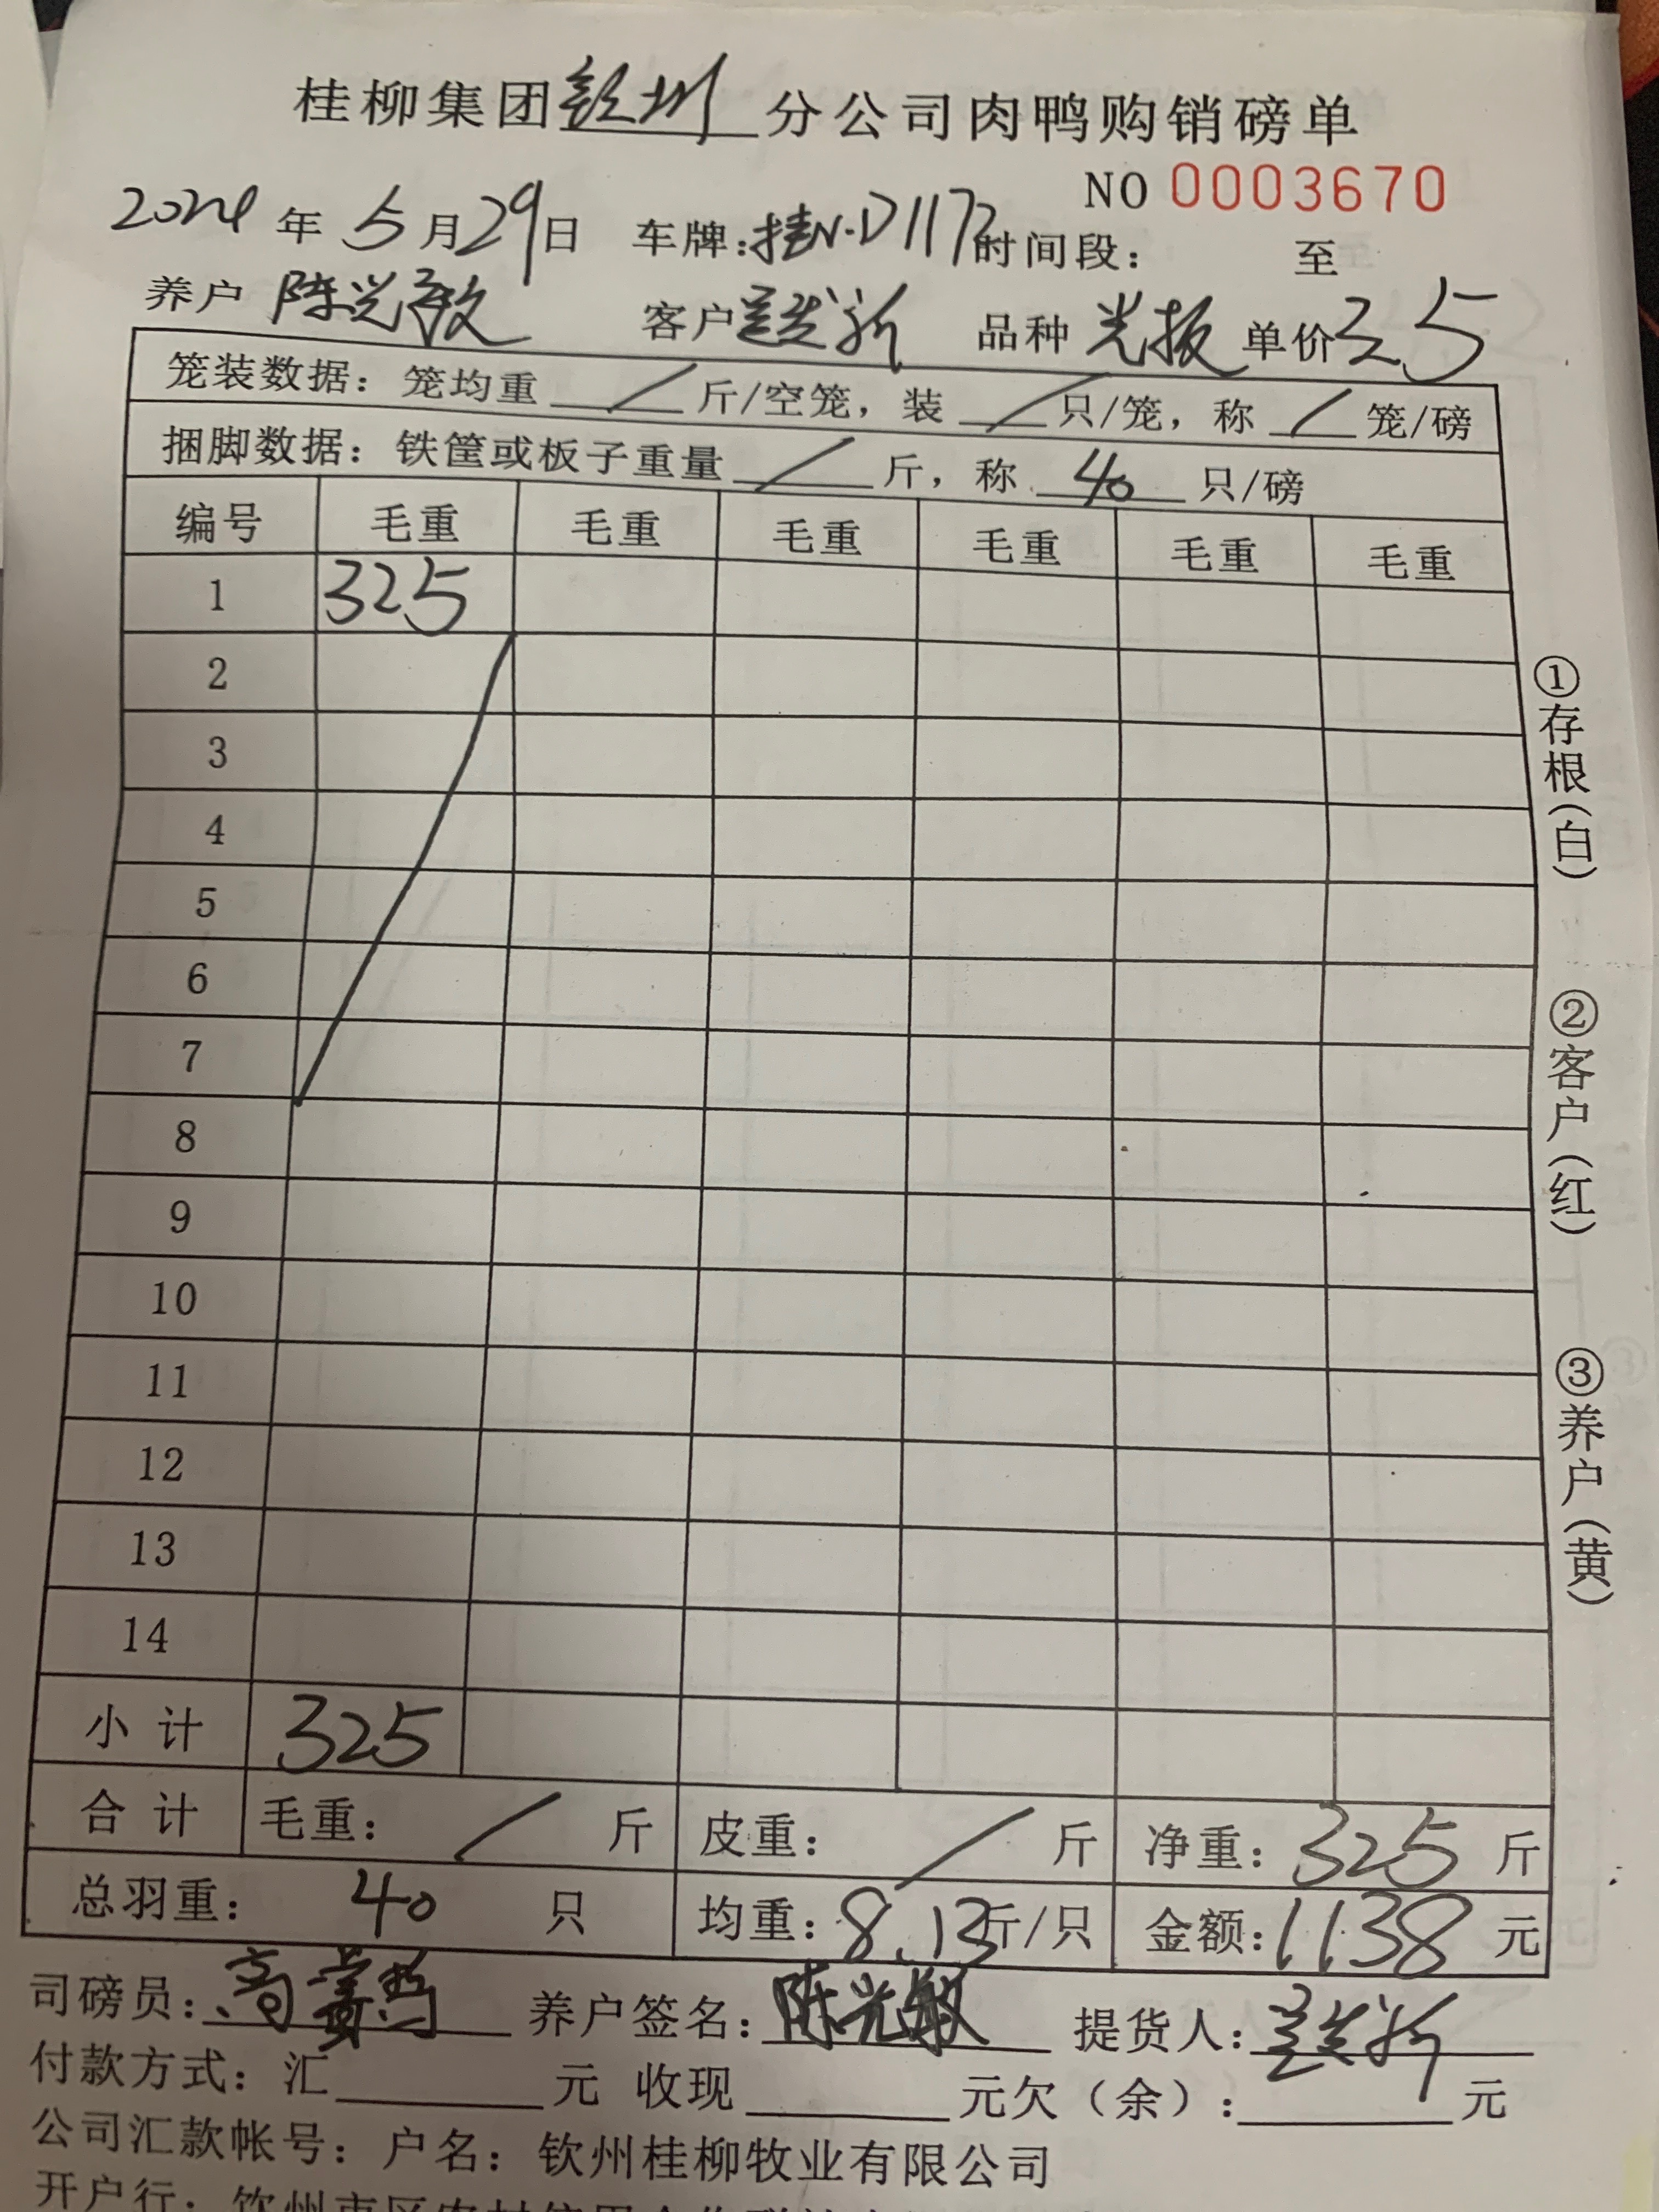 桂柳集团钦州分公司肉鸭购销磅单
NO 0003670
2024年5月29日 车牌:桂N·D1173 时间段: 至
养户 陈光敏 客户 品种 光板 单价3.5
笼装数据:笼均重 / 斤/空笼,装 / 只/笼,称 / 笼/磅
捆脚数据:铁筐或板子重量 / 斤,称 40 只/磅
编号 毛重 毛重 毛重 毛重 毛重 毛重
1 325
2
3
4
5
6
7
8
9
10
11
12
13
14
小计 325
合计 毛重: / 斤 皮重: / 斤 净重:325斤
总羽重: 40 只 均重:8.13斤/只 金额:1138元
司磅员: 养户签名:陈光敏 提货人:
付款方式:汇 元 收现 元欠(余): 元
公司汇款帐号:户名:钦州桂柳牧业有限公司
开户行:钦州市区农村信用合作联社
①存根(白)
②客户(红)
③养户(黄)